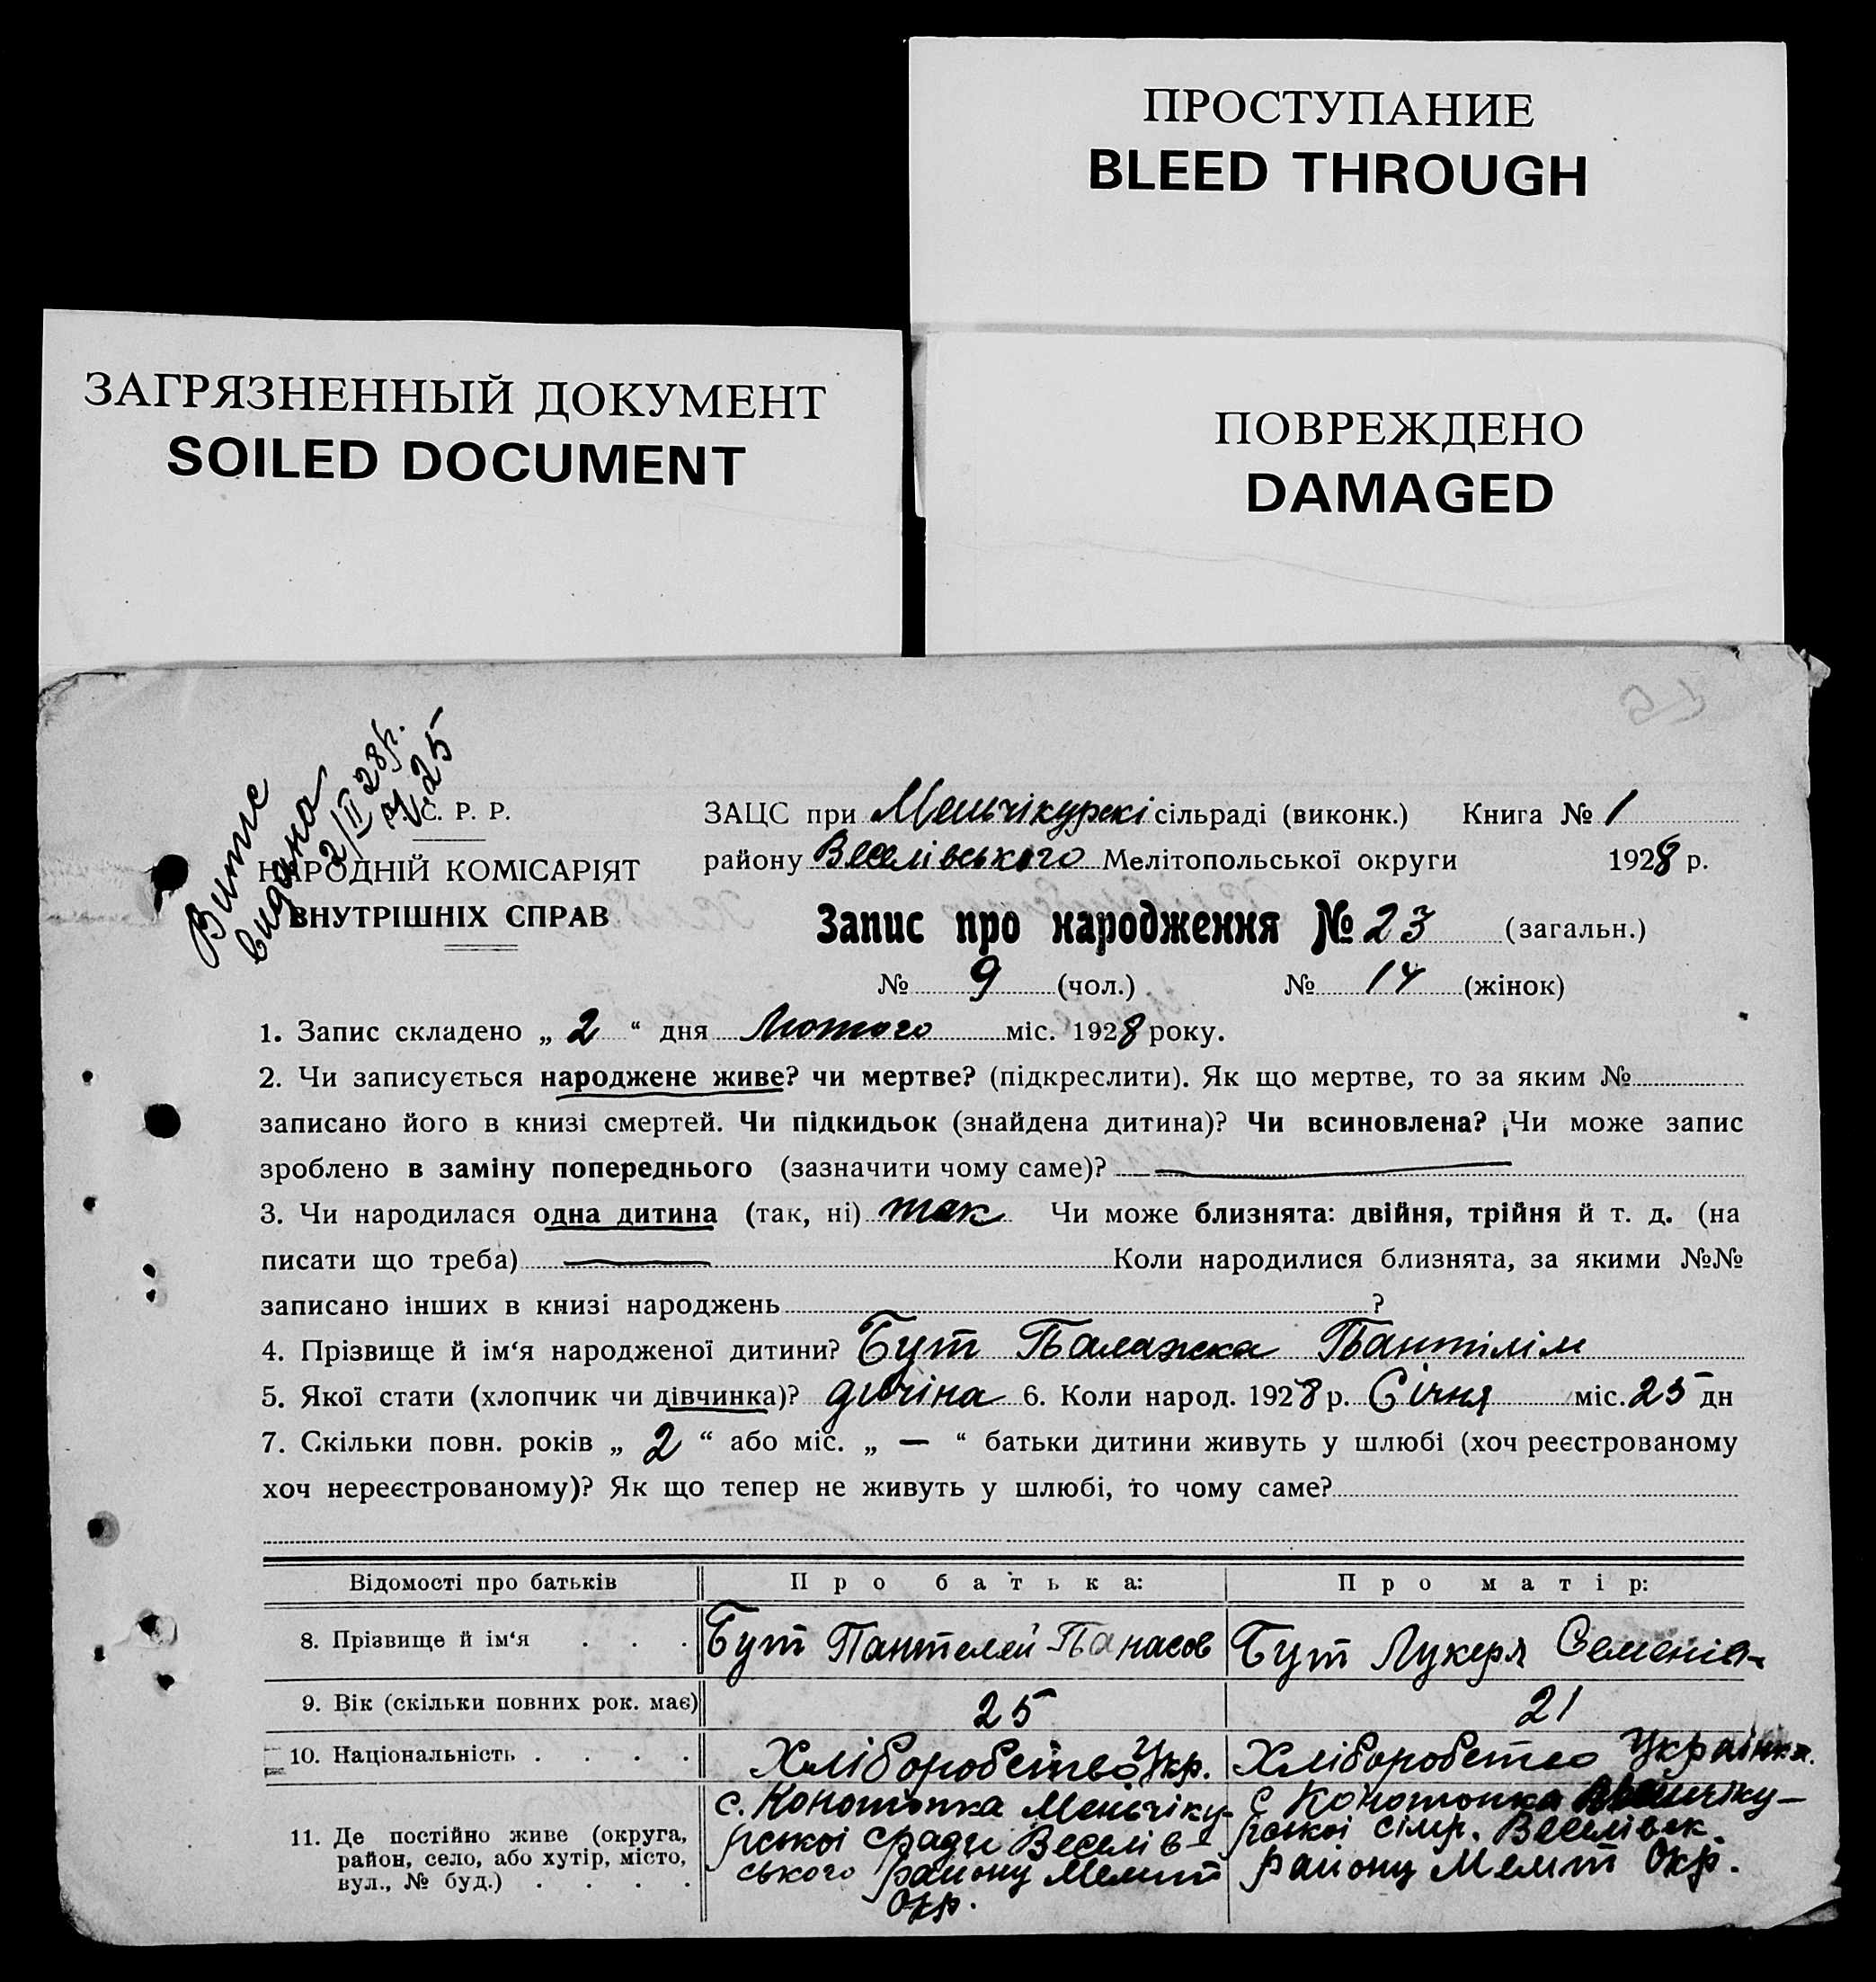 ПРОСТУПАНИЕ
BLEED THROUGH
ЗАГРЯЗНЕННЫЙ ДОКУМЕНТ
SOILED DOCUMENT
ПОВРЕЖДЕНО
DAMAGED
Витис
видана
2/II 28р.
№ 25
С. Р. Р.
НАРОДНІЙ КОМІСАРІЯТ
ВНУТРІШНІХ СПРАВ
ЗАЦС при Менчікурскі сільраді (виконк.) Книга № 1
району Веселівського Мелітопольської округи 1928 р.
Запис про народження № 23 (загальн.)
№ 9 (чол.) № 14 (жінок)
1. Запис складено „ 2 “ дня Лютого міс. 1928 року.
2. Чи записується народжене живе? чи мертве? (підкреслити). Як що мертве, то за яким №
записано його в книзі смертей. Чи підкидьок (знайдена дитина)? Чи всиновлена? Чи може запис
зроблено в заміну попереднього (зазначити чому саме)? —
3. Чи народилася одна дитина (так, ні) так Чи може близнята: двійня, трійня й т. д. (на
писати що треба) — Коли народилися близнята, за якими №№
записано інших в книзі народжень ?
4. Прізвище й ім‘я народженої дитини? Бут Палажка Пантілім
5. Якої стати (хлопчик чи дівчинка)? дівчіна 6. Коли народ. 1928 р. Січня міс. 25 дн
7. Скільки повн. років „ 2 “ або міс. „ — “ батьки дитини живуть у шлюбі (хоч реєстрованому
хоч нереєстрованому)? Як що тепер не живуть у шлюбі, то чому саме?
Відомості про батьків Про батька: Про матір:
8. Прізвище й ім‘я . . . Бут Пантелей Панасов Бут Лукеря Семенів
9. Вік (скільки повних рок. має) 25 21
10. Національність . . . . Хліборобство Укр. Хліборобство Українка.
11. Де постійно живе (округа,
район, село, або хутір, місто,
вул., № буд.) . . . .
с. Конотопка Менчіку-
рської сради Веселів-
ського району Меліт
Окр.
с Конотопка Менчіку-
рської сілр. Веселівск.
району Меліт Окр.